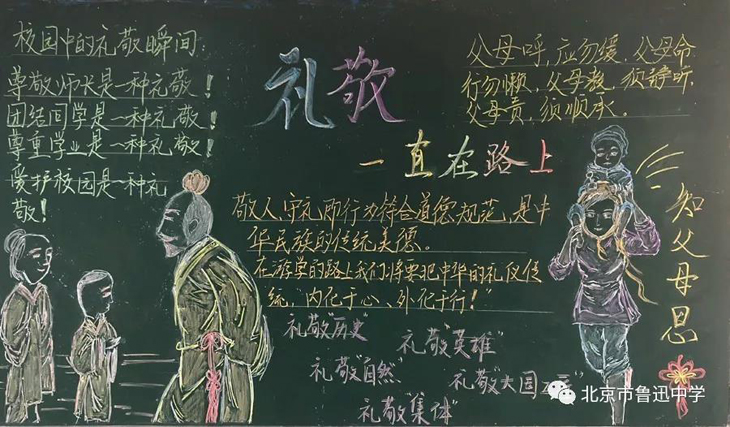 校园中的礼敬瞬间:
尊敬师长是一种礼敬!
团结同学是一种礼敬!
尊重学业是一种礼敬!
爱护校园是一种礼
敬!
礼敬
一直在路上
父母呼,应勿缓,父母命
行勿懒,父母教,须静听
父母责,须顺承。
敬人、守礼即行为符合道德规范,是中
华民族的传统美德。
在游学的路上我们将要把中华的礼仪传
统,“内化于心、外化于行!”
礼敬“历史”
礼敬“英雄”
礼敬“自然”
礼敬“大国
礼敬“集体”
知父母恩
北京市鲁迅中学